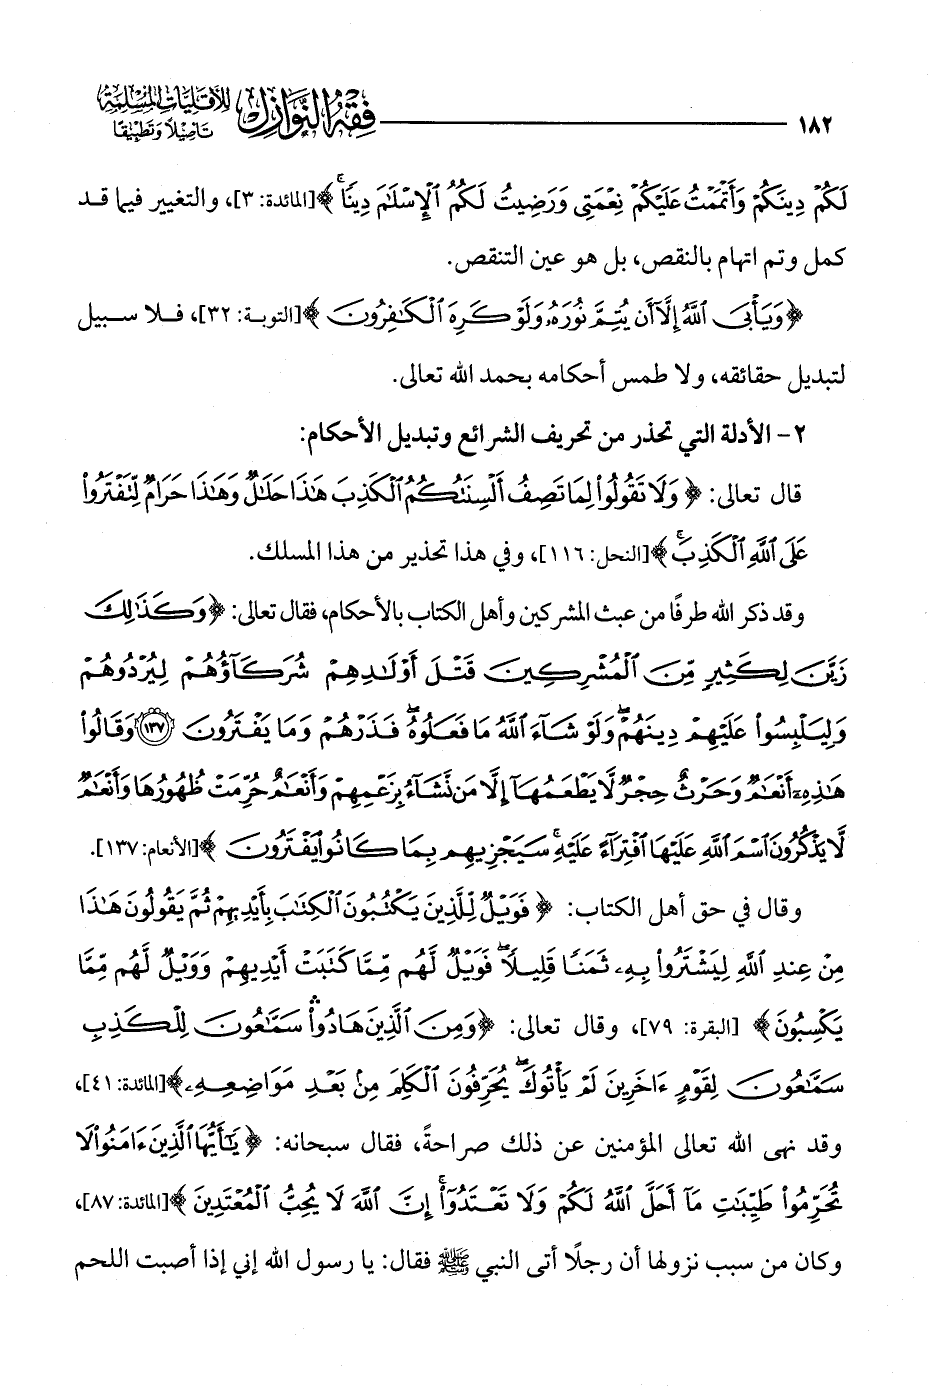 ١٨٢ فقه النوازل للأقليات المسلمة
تأصيلاً وتطبيقًا
لَكُمْ دِينَكُمْ وَأَتْمَمْتُ عَلَيْكُمْ نِعْمَتِى وَرَضِيتُ لَكُمُ ٱلْإِسْلَٰمَ دِينًا ۚ ﴾[المائدة: ٣]، والتغيير فيما قد
كمل وتم اتهام بالنقص، بل هو عين التنقص.
﴿ وَيَأْبَى ٱللَّهُ إِلَّآ أَن يُتِمَّ نُورَهُۥ وَلَوْ كَرِهَ ٱلْكَٰفِرُونَ ﴾[التوبة: ٣٢]، فلا سبيل
لتبديل حقائقه، ولا طمس أحكامه بحمد الله تعالى.
٢- الأدلة التي تحذر من تحريف الشرائع وتبديل الأحكام:
قال تعالى: ﴿ وَلَا تَقُولُوا۟ لِمَا تَصِفُ أَلْسِنَتُكُمُ ٱلْكَذِبَ هَٰذَا حَلَٰلٌ وَهَٰذَا حَرَامٌ لِّتَفْتَرُوا۟
عَلَى ٱللَّهِ ٱلْكَذِبَ ۚ ﴾[النحل: ١١٦]، وفي هذا تحذير من هذا المسلك.
وقد ذكر الله طرفًا من عبث المشركين وأهل الكتاب بالأحكام، فقال تعالى: ﴿ وَكَذَٰلِكَ
زَيَّنَ لِكَثِيرٍ مِّنَ ٱلْمُشْرِكِينَ قَتْلَ أَوْلَٰدِهِمْ شُرَكَآؤُهُمْ لِيُرْدُوهُمْ
وَلِيَلْبِسُوا۟ عَلَيْهِمْ دِينَهُمْ ۖ وَلَوْ شَآءَ ٱللَّهُ مَا فَعَلُوهُ ۖ فَذَرْهُمْ وَمَا يَفْتَرُونَ ﴿١٣٧﴾ وَقَالُوا۟
هَٰذِهِۦٓ أَنْعَٰمٌ وَحَرْثٌ حِجْرٌ لَّا يَطْعَمُهَآ إِلَّا مَن نَّشَآءُ بِزَعْمِهِمْ وَأَنْعَٰمٌ حُرِّمَتْ ظُهُورُهَا وَأَنْعَٰمٌ
لَّا يَذْكُرُونَ ٱسْمَ ٱللَّهِ عَلَيْهَا ٱفْتِرَآءً عَلَيْهِ ۚ سَيَجْزِيهِم بِمَا كَانُوا۟ يَفْتَرُونَ ﴾[الأنعام: ١٣٧].
وقال في حق أهل الكتاب: ﴿ فَوَيْلٌ لِّلَّذِينَ يَكْتُبُونَ ٱلْكِتَٰبَ بِأَيْدِيهِمْ ثُمَّ يَقُولُونَ هَٰذَا
مِنْ عِندِ ٱللَّهِ لِيَشْتَرُوا۟ بِهِۦ ثَمَنًا قَلِيلًا ۖ فَوَيْلٌ لَّهُم مِّمَّا كَتَبَتْ أَيْدِيهِمْ وَوَيْلٌ لَّهُم مِّمَّا
يَكْسِبُونَ ﴾ [البقرة: ٧٩]، وقال تعالى: ﴿ وَمِنَ ٱلَّذِينَ هَادُوا۟ ۛ سَمَّٰعُونَ لِلْكَذِبِ
سَمَّٰعُونَ لِقَوْمٍ ءَاخَرِينَ لَمْ يَأْتُوكَ ۖ يُحَرِّفُونَ ٱلْكَلِمَ مِنۢ بَعْدِ مَوَاضِعِهِۦ ﴾[المائدة: ٤١]،
وقد نهى الله تعالى المؤمنين عن ذلك صراحةً، فقال سبحانه: ﴿ يَٰٓأَيُّهَا ٱلَّذِينَ ءَامَنُوا۟ لَا
تُحَرِّمُوا۟ طَيِّبَٰتِ مَآ أَحَلَّ ٱللَّهُ لَكُمْ وَلَا تَعْتَدُوٓا۟ ۚ إِنَّ ٱللَّهَ لَا يُحِبُّ ٱلْمُعْتَدِينَ ﴾[المائدة: ٨٧]،
وكان من سبب نزولها أن رجلًا أتى النبي ﷺ فقال: يا رسول الله إني إذا أصبت اللحم